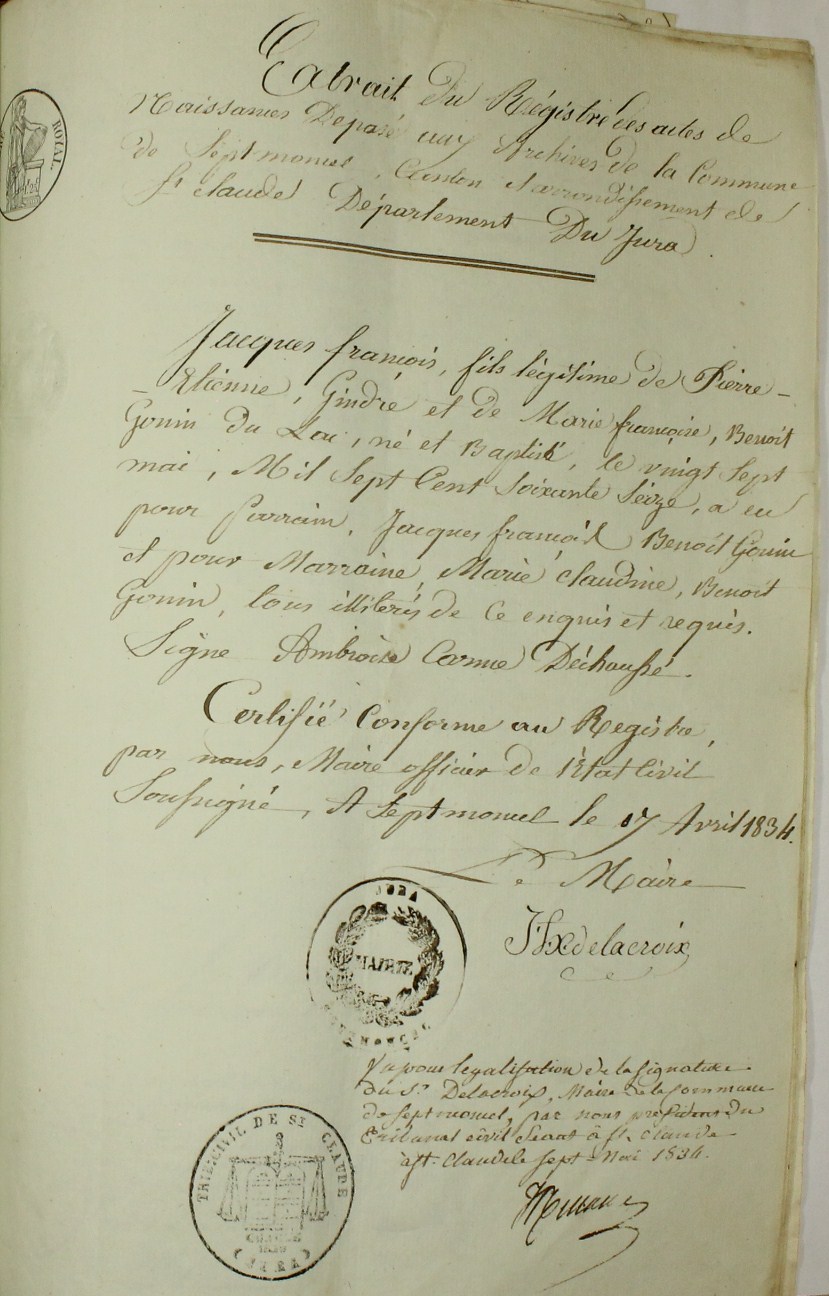 ROYAL.
Extrait Du Régistre des actes de
Naissances Deposé aux Archives de la Commune
de Septmoncel, Canton et arrondissement de
St Claude Département Du Jura.
Jacques françois, fils légitime de Pierre-
-Etienne, Gindre et de Marie françoise, Benoit
Gonin du Lac, né et Baptisé, le vingt Sept
mai, Mil Sept Cent Soixante Seize, a eu
pour Parrain, Jacques françois Benoit Gonin
et pour Marraine, Marie Claudine, Benoit
Gonin, tous illiterés de Ce enquis et requis.
Signé Ambroise Carme Déchaussé.
Certifié Conforme au Registre,
par nous, Maire officier de l'Etat Civil
Soussigné, A Septmoncel le 17 Avril 1834.
Le Maire
JURA
MAIRIE
delacroix
Vu pour legalisation de la signature
du Sr. Delacroix, Maire de la Commune
de Septmoncel, par nous président du
Tribunal civil Séant à St. Claude
à St. Claude le sept Mai 1834.
TRIB. CIVIL DE ST CLAUDE
(JURA)